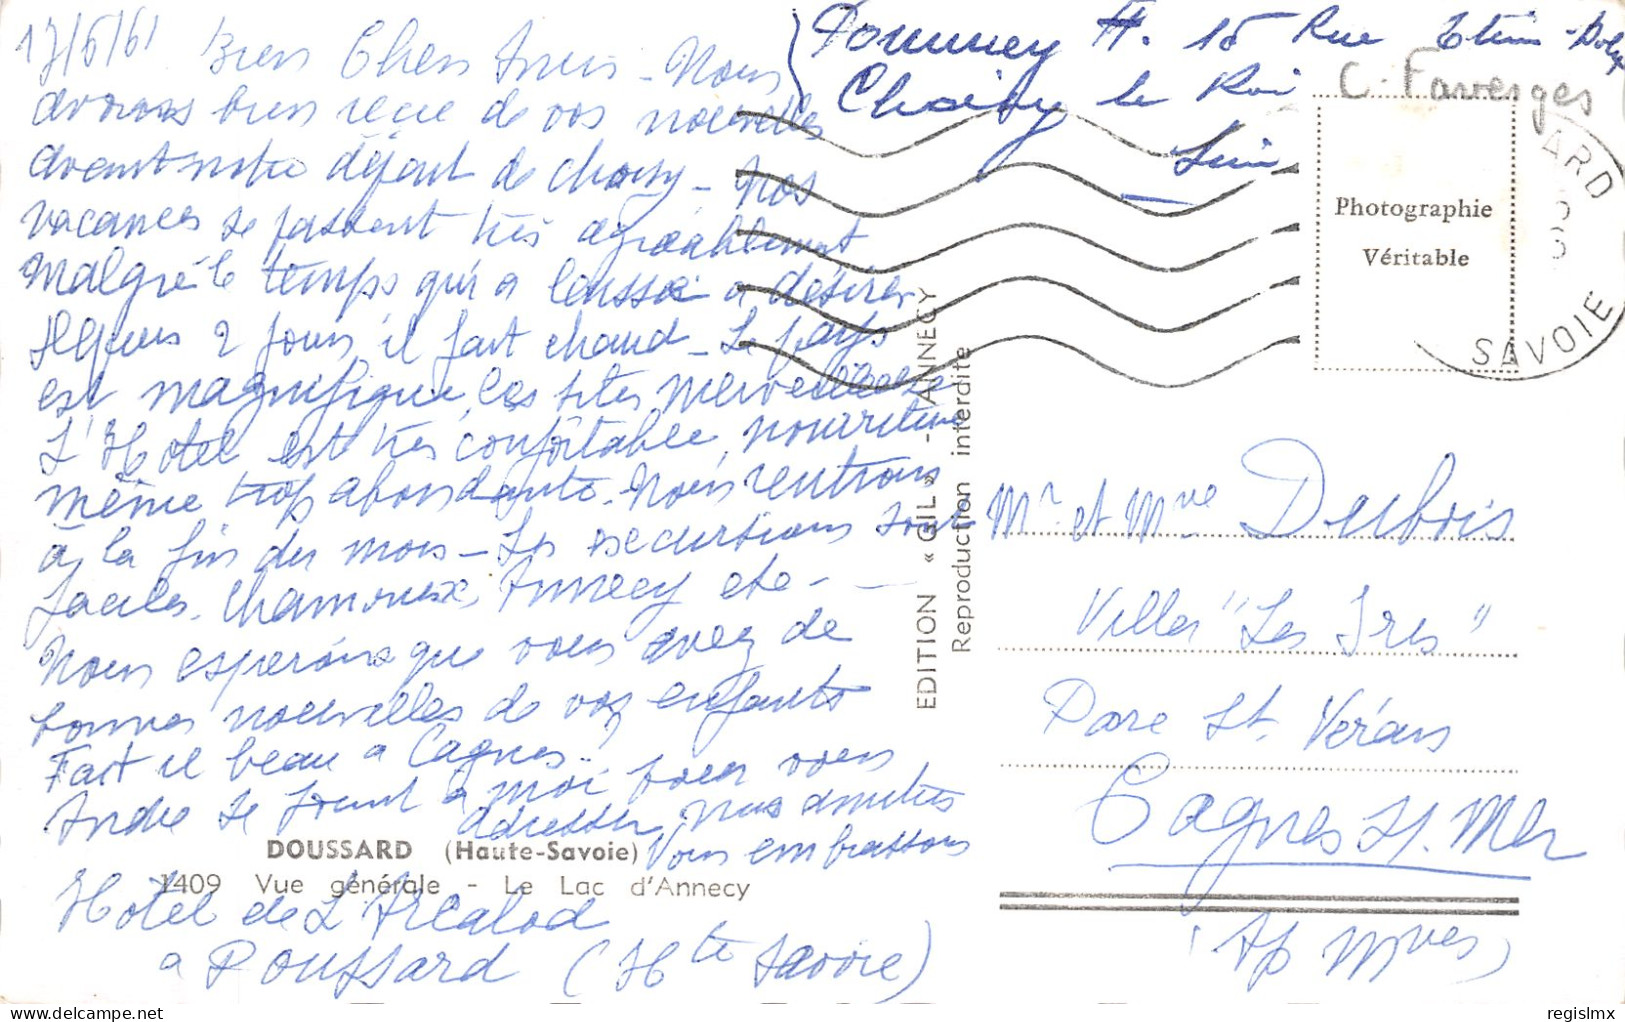 17/6/61 Bien Chers Amis - Nous
avons bien reçu de vos nouvelles
avant notre départ de choisy - Nos
vacances se passent très agréablement
malgré le temps qui a laissé a désirer
2 jours, il fait chaud - Le pays
est magnifique, les sites merveilleux
L'Hotel est très confortable, nourriture
même trop abondante. Nous rentrons
à la fin du mois - Les excurtions sont
faciles, Chamonix, Annecy etc -
Nous espérons que vous avez de
bonnes nouvelles de vos enfants
Fait il beau a Cagnes..?
Andre se joint a moi pour vous
adresser, nos amitiés
Vous embrassons
DOUSSARD (Haute-Savoie)
1409 Vue générale - Le Lac d'Annecy
Hotel de L'Arcalod
a Doussard (Hte Savoie)
EDITION « GIL » - ANNECY
Reproduction interdite
H. 15 Rue
Choisy le Roi
Seine
C. Faverges
Photographie
Véritable
ARD
SAVOIE
Mr et Mme Dubois
Villa "Les Iris"
Parc St. Véran
Cagnes s/. Mer
(Alp Mmes)
regislmx